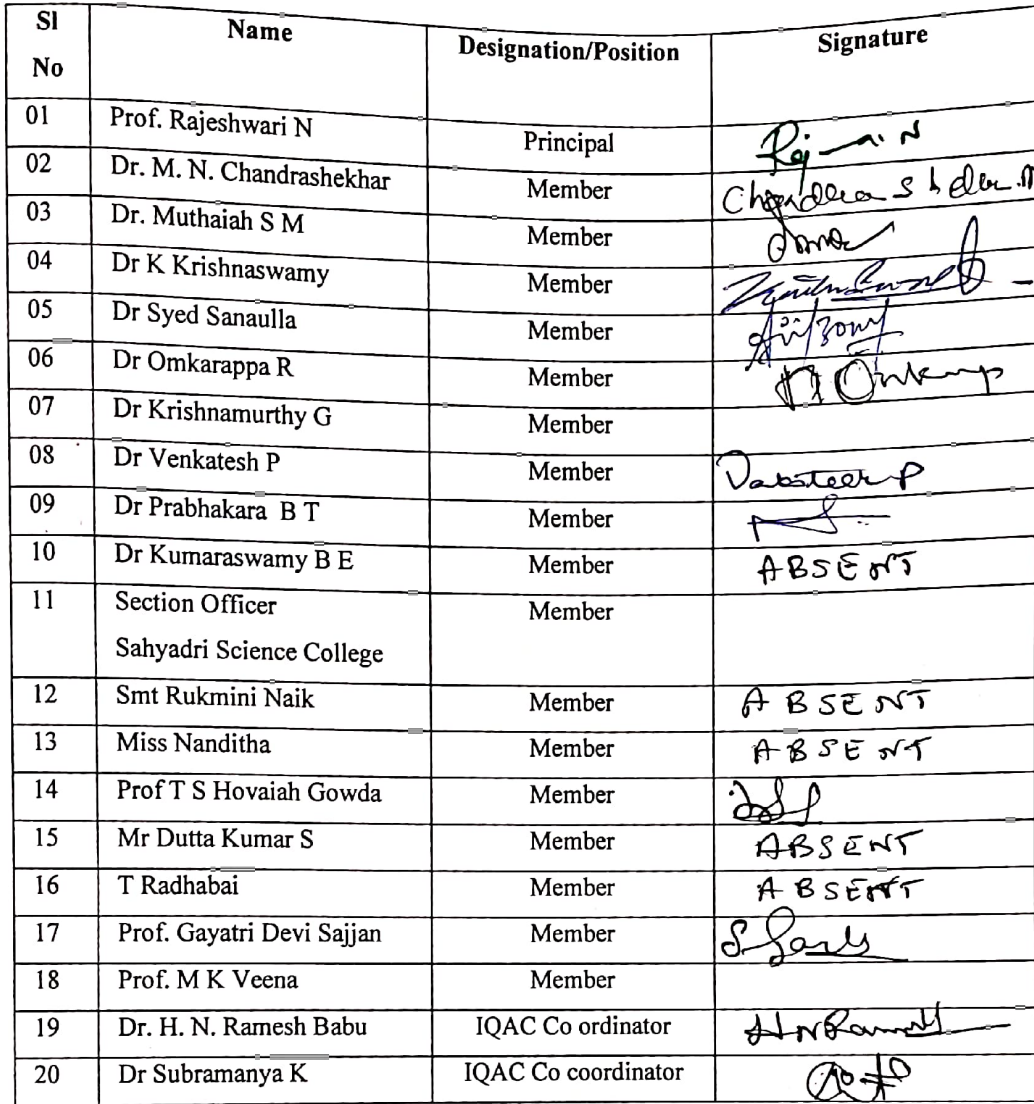 Sl No Name Designation/Position Signature
01 Prof. Rajeshwari N Principal
02 Dr. M. N. Chandrashekhar Member
03 Dr. Muthaiah S M Member
04 Dr K Krishnaswamy Member
05 Dr Syed Sanaulla Member
06 Dr Omkarappa R Member
07 Dr Krishnamurthy G Member
08 Dr Venkatesh P Member
09 Dr Prabhakara B T Member
10 Dr Kumaraswamy B E Member ABSENT
11 Section Officer Member
Sahyadri Science College
12 Smt Rukmini Naik Member ABSENT
13 Miss Nanditha Member ABSENT
14 Prof T S Hovaiah Gowda Member
15 Mr Dutta Kumar S Member ABSENT
16 T Radhabai Member ABSENT
17 Prof. Gayatri Devi Sajjan Member
18 Prof. M K Veena Member
19 Dr. H. N. Ramesh Babu IQAC Co ordinator
20 Dr Subramanya K IQAC Co coordinator